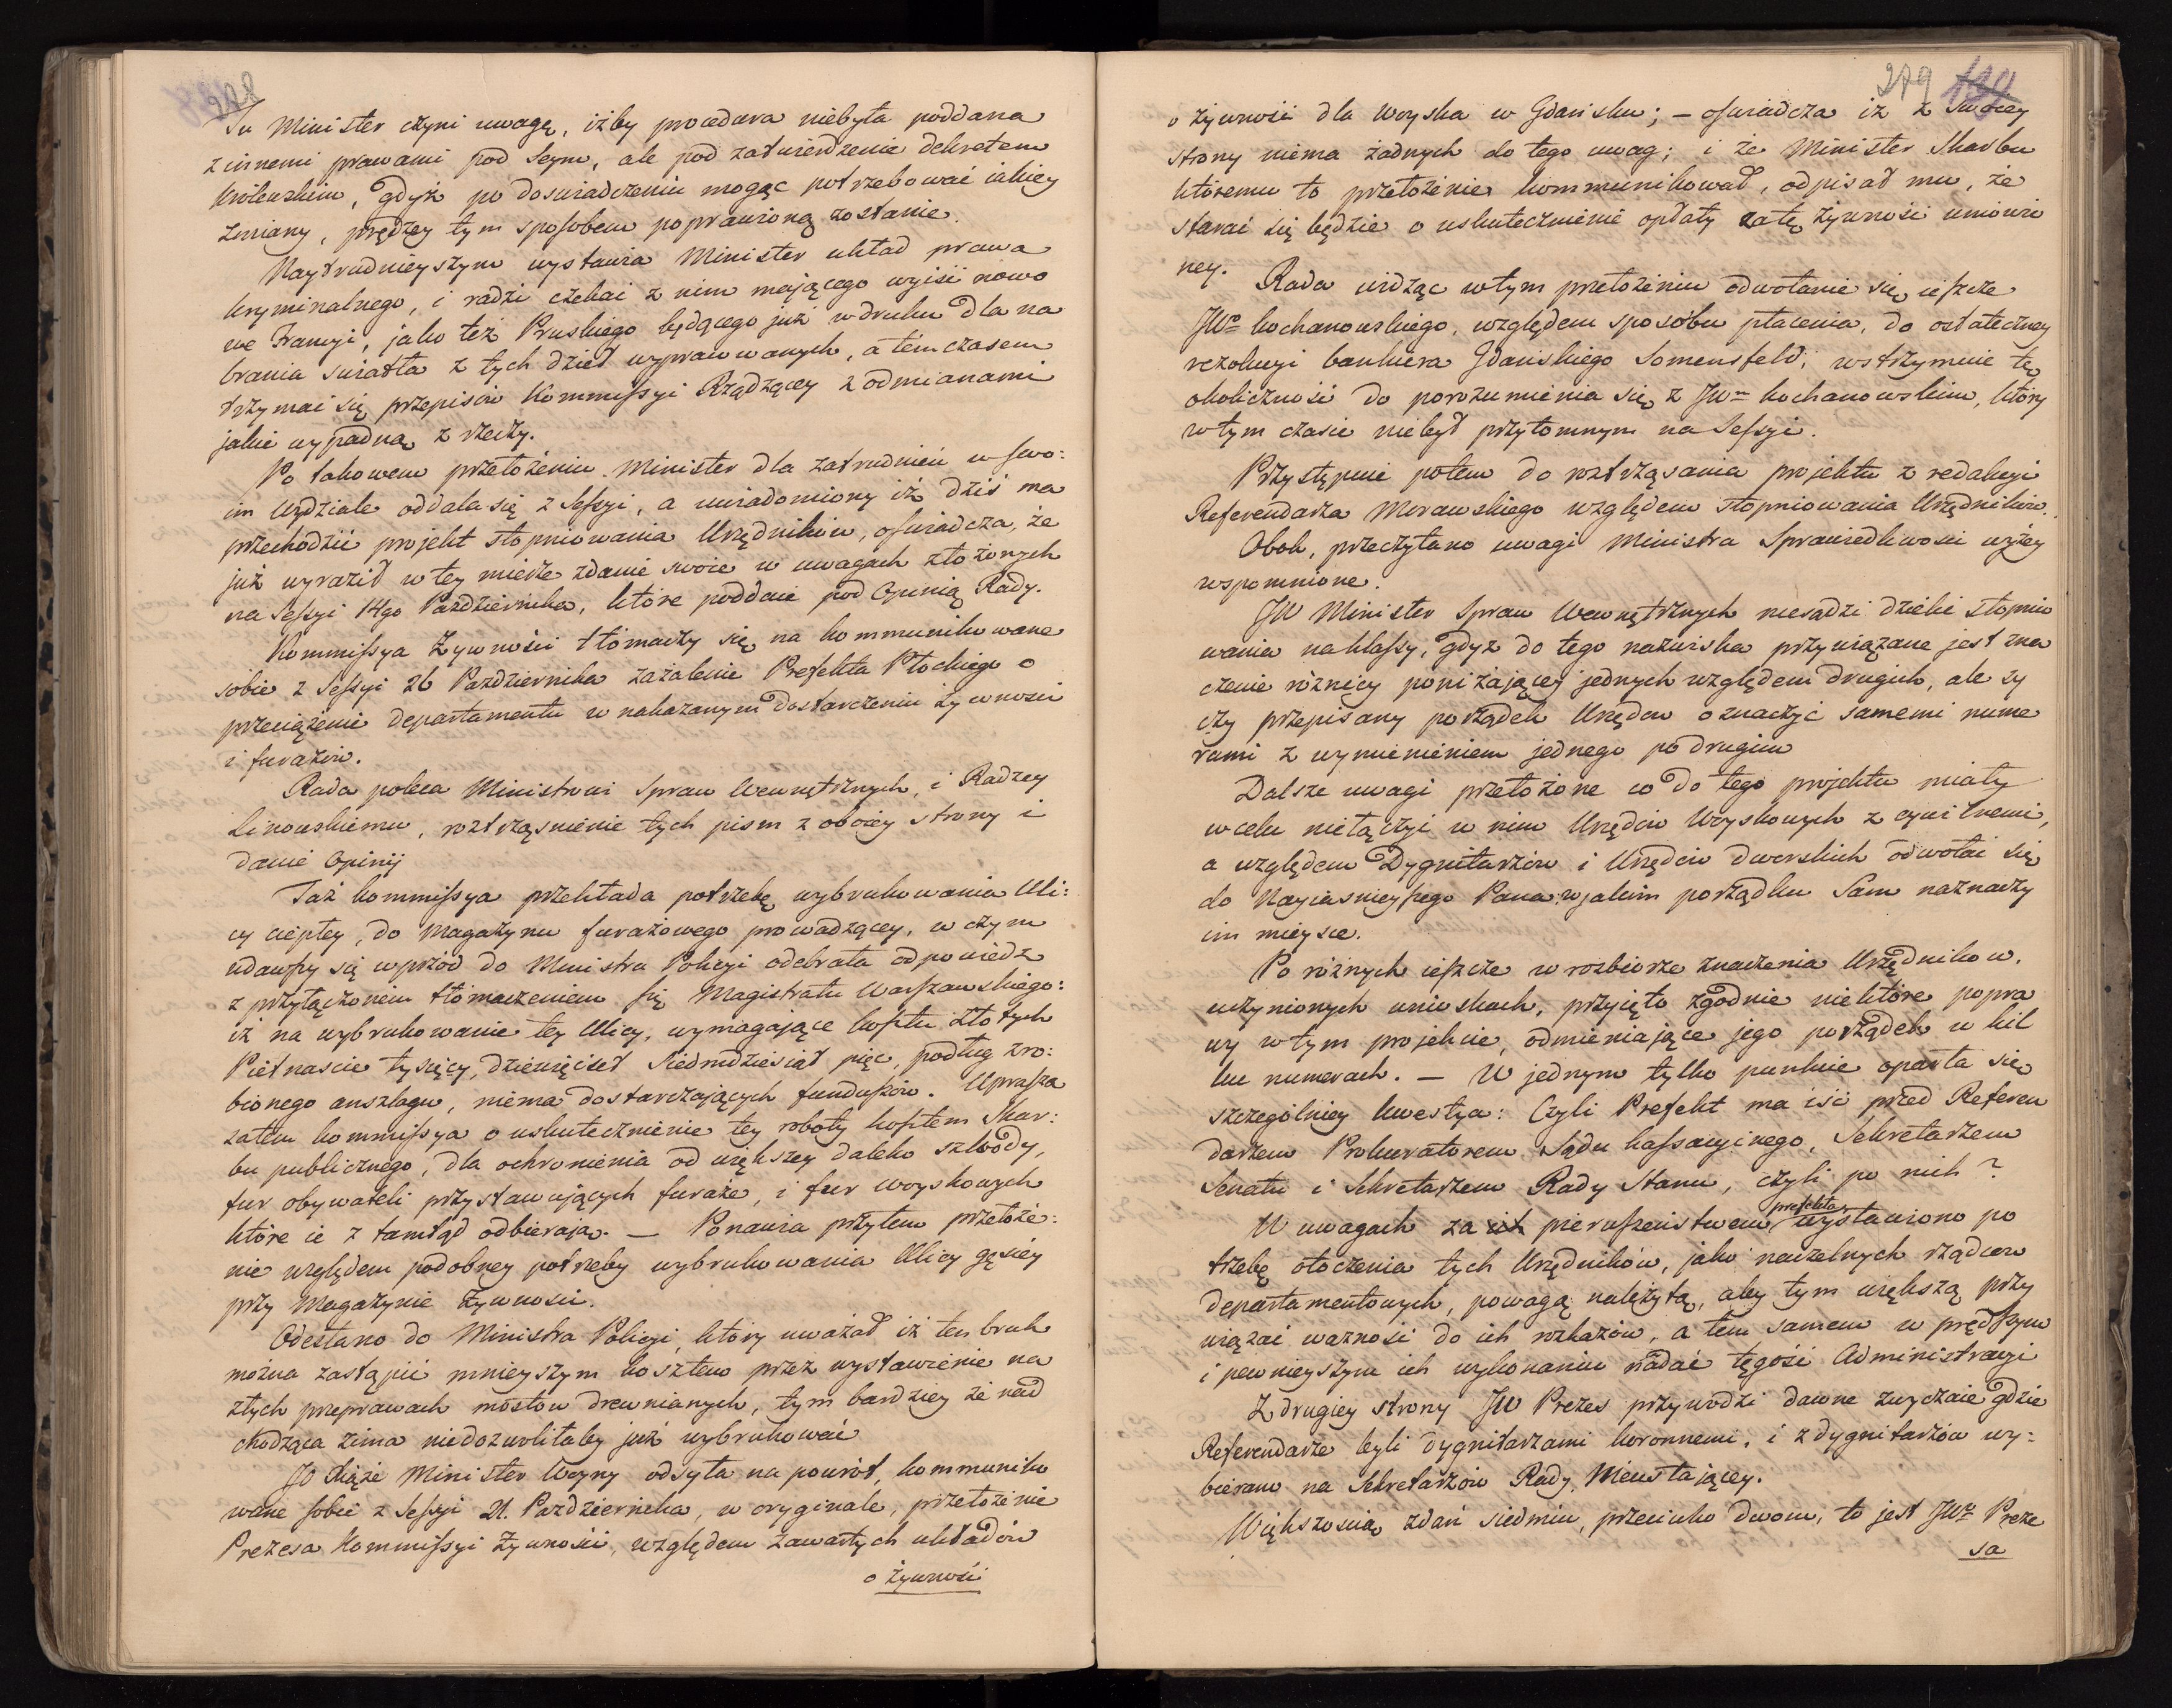 278
Tu Minister czyni uwagę, iżby procedura niebyła poddana
z innemi prawami pod Seym, ale pod zatwierdzenie dekretem
Królewskim, gdyż po doswiadczeniu mogąc potrzebować iakiey
zmiany, prędzey tym sposobem poprawioną zostanie.
Naytrudnieyszym wystawia Minister układ prawa
kryminalnego, i radzi czekać z nim maiącego wyiść nowo
we Francyi, jako też Pruskiego będącego już w druku dla na
brania swiatła z tych dzieł wyprawowanych, a tém czasem
trzymać się przepisów Kommissyi Rządzącey z odmianami
jakie wypadną z rzeczy.
Po takowem przełożeniu Minister dla zatrudnień w swo:
im Wydziale oddala się z Sessyi, a uwiadomiony iż dziś ma
przechodzić projekt stopniowania Urzędników, oswiadcza, że
już wyraził w tey mierze zdanie swoie w uwagach złożonych
na Sessyi 14go Pazdziernika, które poddaie pod Opinią Rady.
Kommissya Żywności tłómaczy się na kommunikowane
sobie z Sessyi 26 Pazdziernika zażalenie Prefekta Płockiego o
przeciążenie departamentu w nakazanym dostarczeniu żywnosci
i furażów.
Rada poleca Ministrowi Spraw Wewnętrznych, i Radzcy
Linowskiemu, roztrząsnienie tych pism z obóiey strony i
danie Opinij
Taż kommissya przekłada potrzebę wybrukowania Uli:
cy ciepłey, do Magazynu furażowego prowadzącey, w czym
udawszy się wprzód do Ministra Policyi odebrała odpowiedz
z przyłączonem tłómaczeniem się Magistratu Warszawskiego:
iż na wybrukowanie tey Ulicy, wymagaiące kosztu złotych
Piętnascie tysięcy, dziewięćset siedmdziesiąt pięc, podług zro:
bionego anszlagu, niema dostarczających funduszów. Uprasza
zatem kommissya o uskutecznienie tey roboty kosztem Skar:
bu publicznego, dla ochronienia od większey daleko szkody,
fur obywateli przystawuiących furaże, i fur woyskowych
które ie z tamtąd odbieraią. — Ponawia przytem przełoże:
nie względem podobney potrzeby wybrukowania Ulicy gęsiéy
przy Magazynie Żywnosci.
Odesłano do Ministra Policyi, który uważał iż ten bruk
można zastąpić mnieyszym kosztem przez wystawienie na
złych przeprawach mostow drewnianych, tym bardziey że nad
chodząca zima niedozwoliłaby już wybrukować
JO Xiąże Minister Woyny odsyła na powrót, kommuniko
wane sobie z Sessyi 21. Pazdziernika, w oryginale, przełożenie
Prezesa Kommissyi Żywności, względem zawartych układów
o żywności
279
o żywnośi dla Woyska w Gdańsku; — oswiadcza iż z swoiey
strony niema żadnych do tego uwag; i że Minister Skarbu
któremu to przełożenie kommunikował, odpisał mu, że
starać się będzie o uskutecznienie opłaty za tę żywności umówio
ney.
Rada widząc w tym przełożeniu odwołanie się ieszcze
JWo Kochanowskiego, względem sposóbu płacenia, do ostateczney
rezolucyi bankiera Gdańskiego Somensfeld, wstrzymuie tę
okoliczność do porozumienia się z JWm Kochanowskim, który
w tym czasie niebył przytomnym na Sessyi.
Przystępuie potem do roztrząsania projektu z redakcyi
Referendarza Morawskiego względem stopniowania Urzędników.
Obok, przeczytano uwagi Ministra Sprawiedliwosci wyżey
wspomnione.
JW Minister Spraw Wewnętrznych niesądzi dzielić stopnio
wania na klassy, gdyż do tego nazwiska przywiązane jest zna
czenie różnicy poniżaiącey jednych względem drugich, ale ży
czy przepisany porządek Urzędow oznaczyć samemi nume
rami z wymienieniem jednego po drugim
Dalsze uwagi przełożone co do tego projektu miały
w celu niełączyć w nim Urzędów Woyskowych z cywilnemi,
a względem Dygnitarzów i Urzędów dworskich odwołać się
do Nayiasnieyszego Pana w jakim porządku Sam naznaczy
im mieysce.
Po różnych ieszcze w rozbiorze znaczenia Urzędnikow,
uczynionych wnioskach, przyięto zgodnie niektóre popra
wy w tym projekcie, odmieniaiące jego porządek w kil
ku numerach. — W jednym tylko punkcie oparła się
szczególniey kwestya: Czyli Prefekt ma iść przed Referen
darzem Prokuratorem Sądu kassacyinego, Sekretarzem
Senatu i Sekretarzem Rady Stanu, czyli po nich?
W uwagach za ich pierwszeństwem prefekta wystawiono po
trzebę otoczenia tych Urzędników, jako naczelnych rządców
departamentowych, powagą należytą, aby tym większą przy
wiązać ważnośi do ich rozkazów, a tem samem w prędszym
i pewnieyszym ich wykonaniu nadać tęgość Administracyi
Z drugiey strony JW Prezes przywodzi dawne zwyczaie gdzie
Referendarze byli dygnitarzami koronnemi, i z dygnitarzów wy:
bierano na Sekretarzów Rady Nieustaiącey.
Większoscią zdań siedmiu, przeciwko dwom, to jest JWo Preze
sa